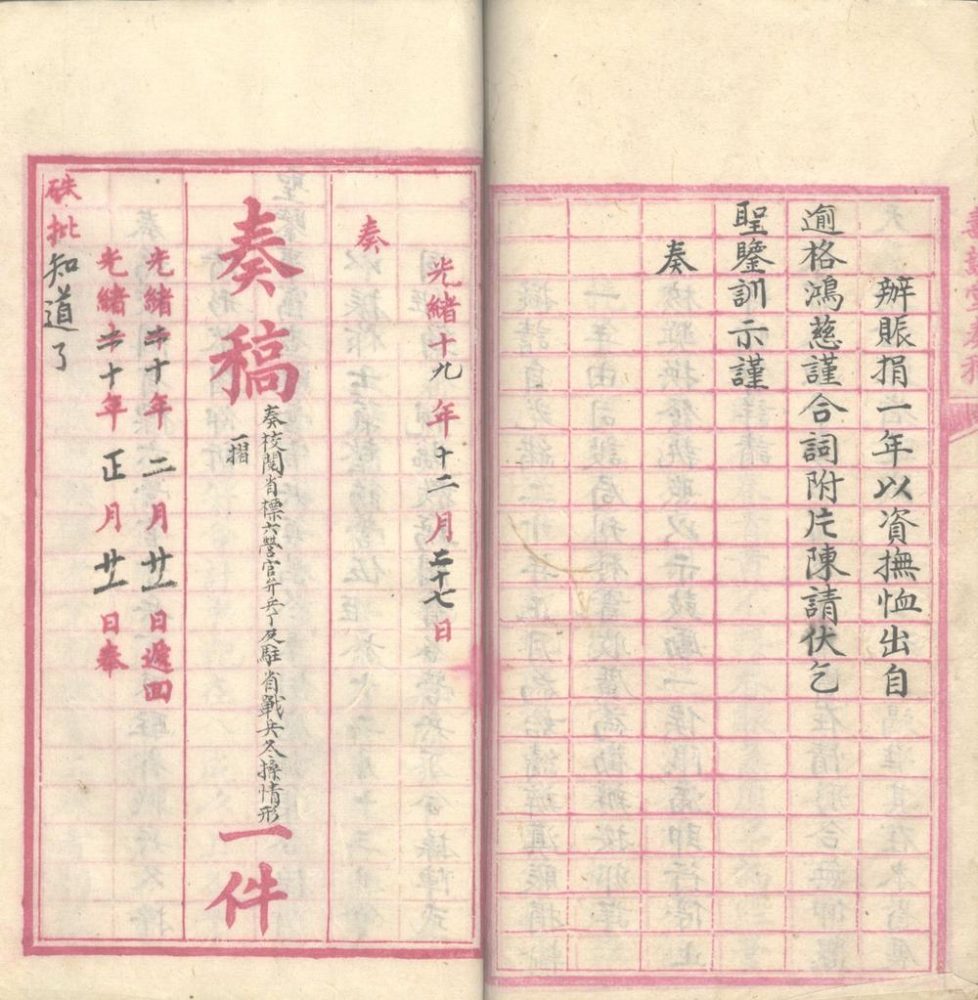 辦賑捐一年以資撫恤出自
逾格鴻慈謹合詞附片陳請伏乞
聖鑒訓示謹
奏
光緒十九年十二月二十七日
奏
奏稿
奏校閱省標六營官弁兵丁及駐省戰兵冬操情形
一摺
一件
光緒二十年二月廿一日遞回
光緒二十年正月廿一日奉
硃批知道了